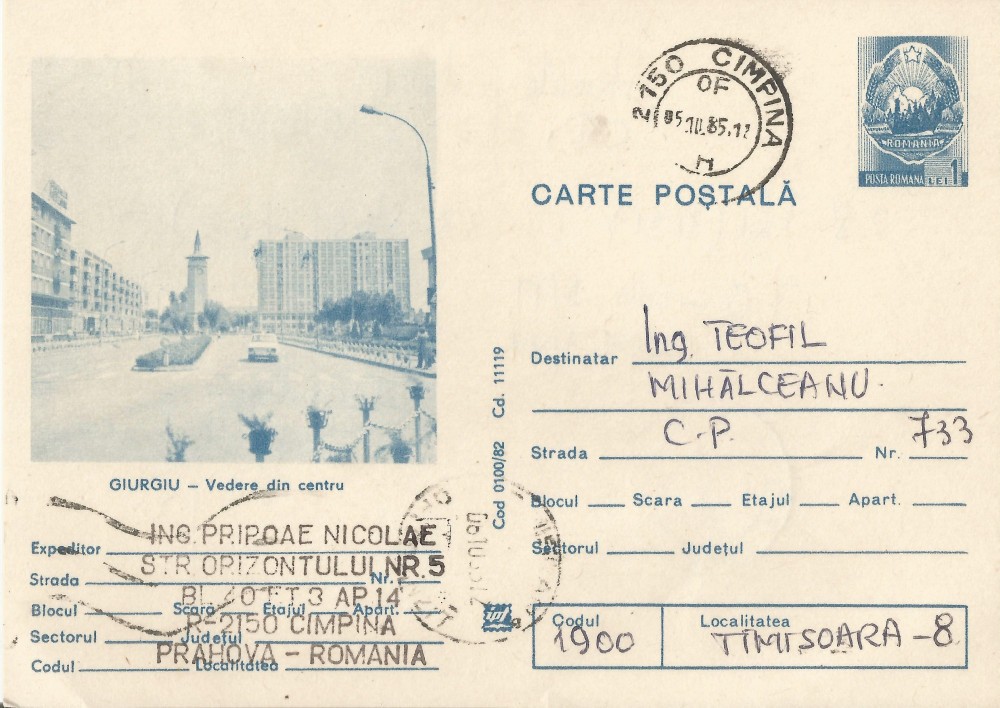 2150 CIMPINA
OF
H
ROMANIA
POSTA ROMANA LEI 1
CARTE POȘTALĂ
Destinatar Ing. TEOFIL
MIHĂLCEANU.
C.P. 733
Strada Nr.
Blocul Scara Etajul Apart.
Sectorul Județul
Codul Localitatea
1900 TIMISOARA-8
Cod 0100/82 Cd. 11119
GIURGIU – Vedere din centru
Expeditor
Strada Nr.
Blocul Scară Etajul Apart.
Sectorul Județul
Codul Localitatea
ING. PRIPOAE NICOLAE
STR ORIZONTULUI NR.5
BL. 40 ET 3 AP. 14
R-2150 CIMPINA
PRAHOVA – ROMANIA